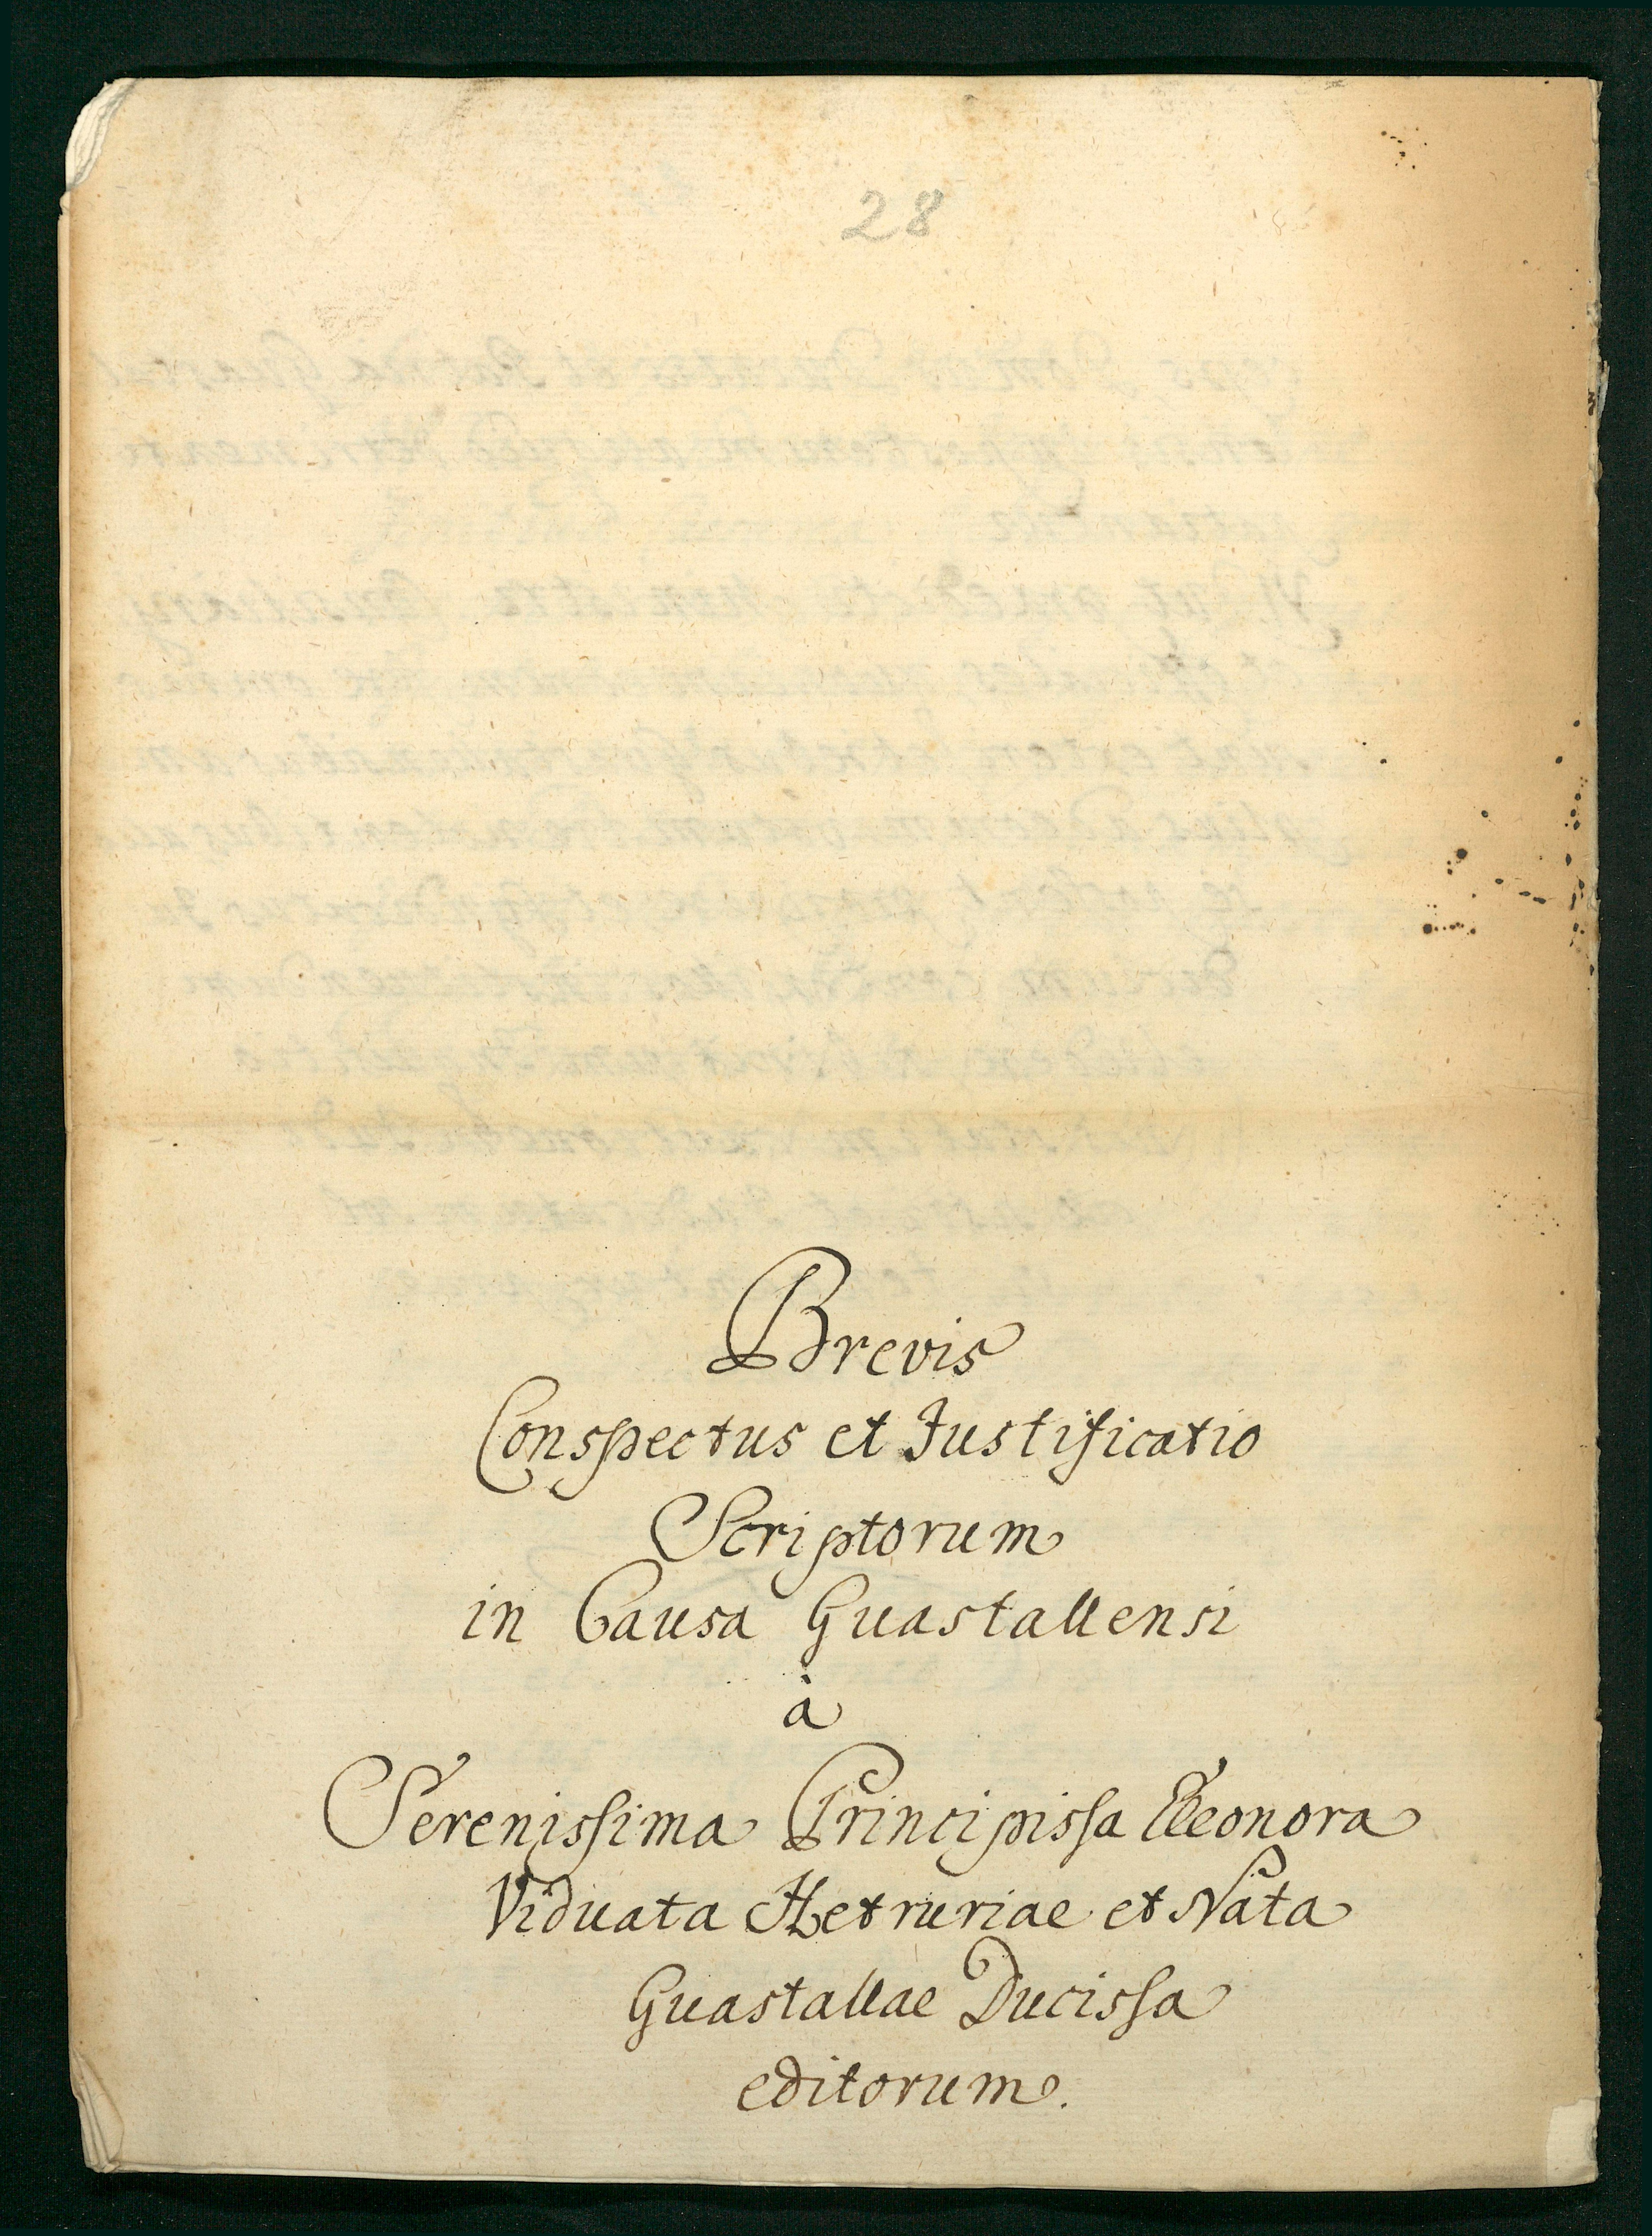 28
Brevis
Conspectus et Justificatio
Scriptorum
in Causa Guastallensi
à
Serenissima Principissa Eleonora
Viduata Hetruriae et Nata
Guastallae Ducissa
editorum.